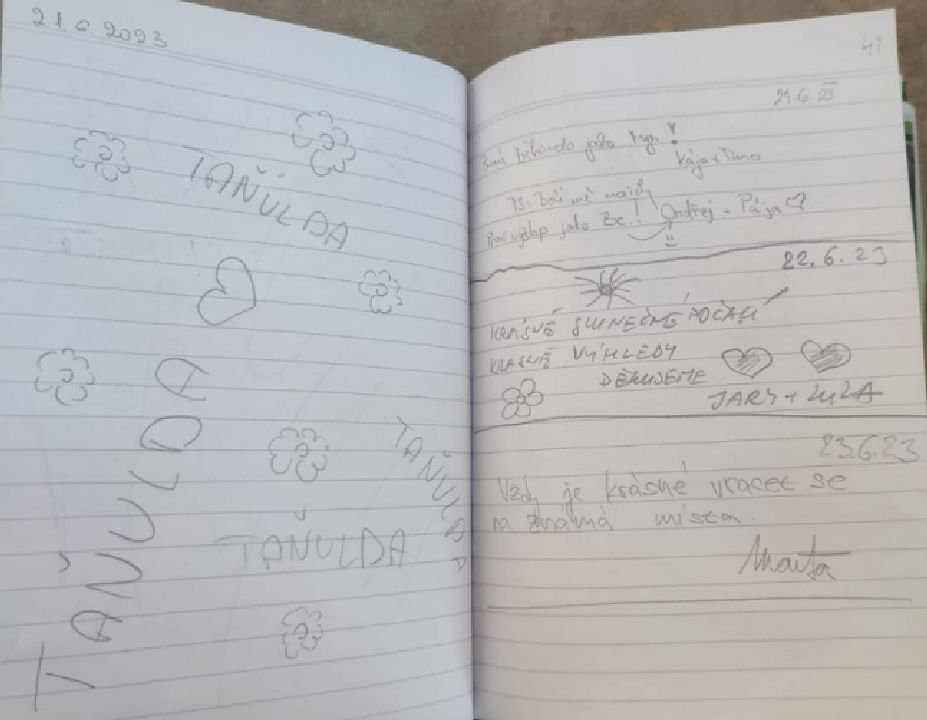 21.6.2023
TAŇULDA
TAŇULDA
TAŇULDA
TAŇULDA
21.6 23
jako
Kája +
PS. Bolí mě
První výšlap jako Bc.! Ondřej + Pája
22.6.23
KRÁSNÉ SLUNEČNÉ POČASÍ
KRASNÉ VÝHLEDY
DĚKUJEME
JARY + ZUZA
23.6.23
Vždy je krásné vracet se
na známá místa.
Marta